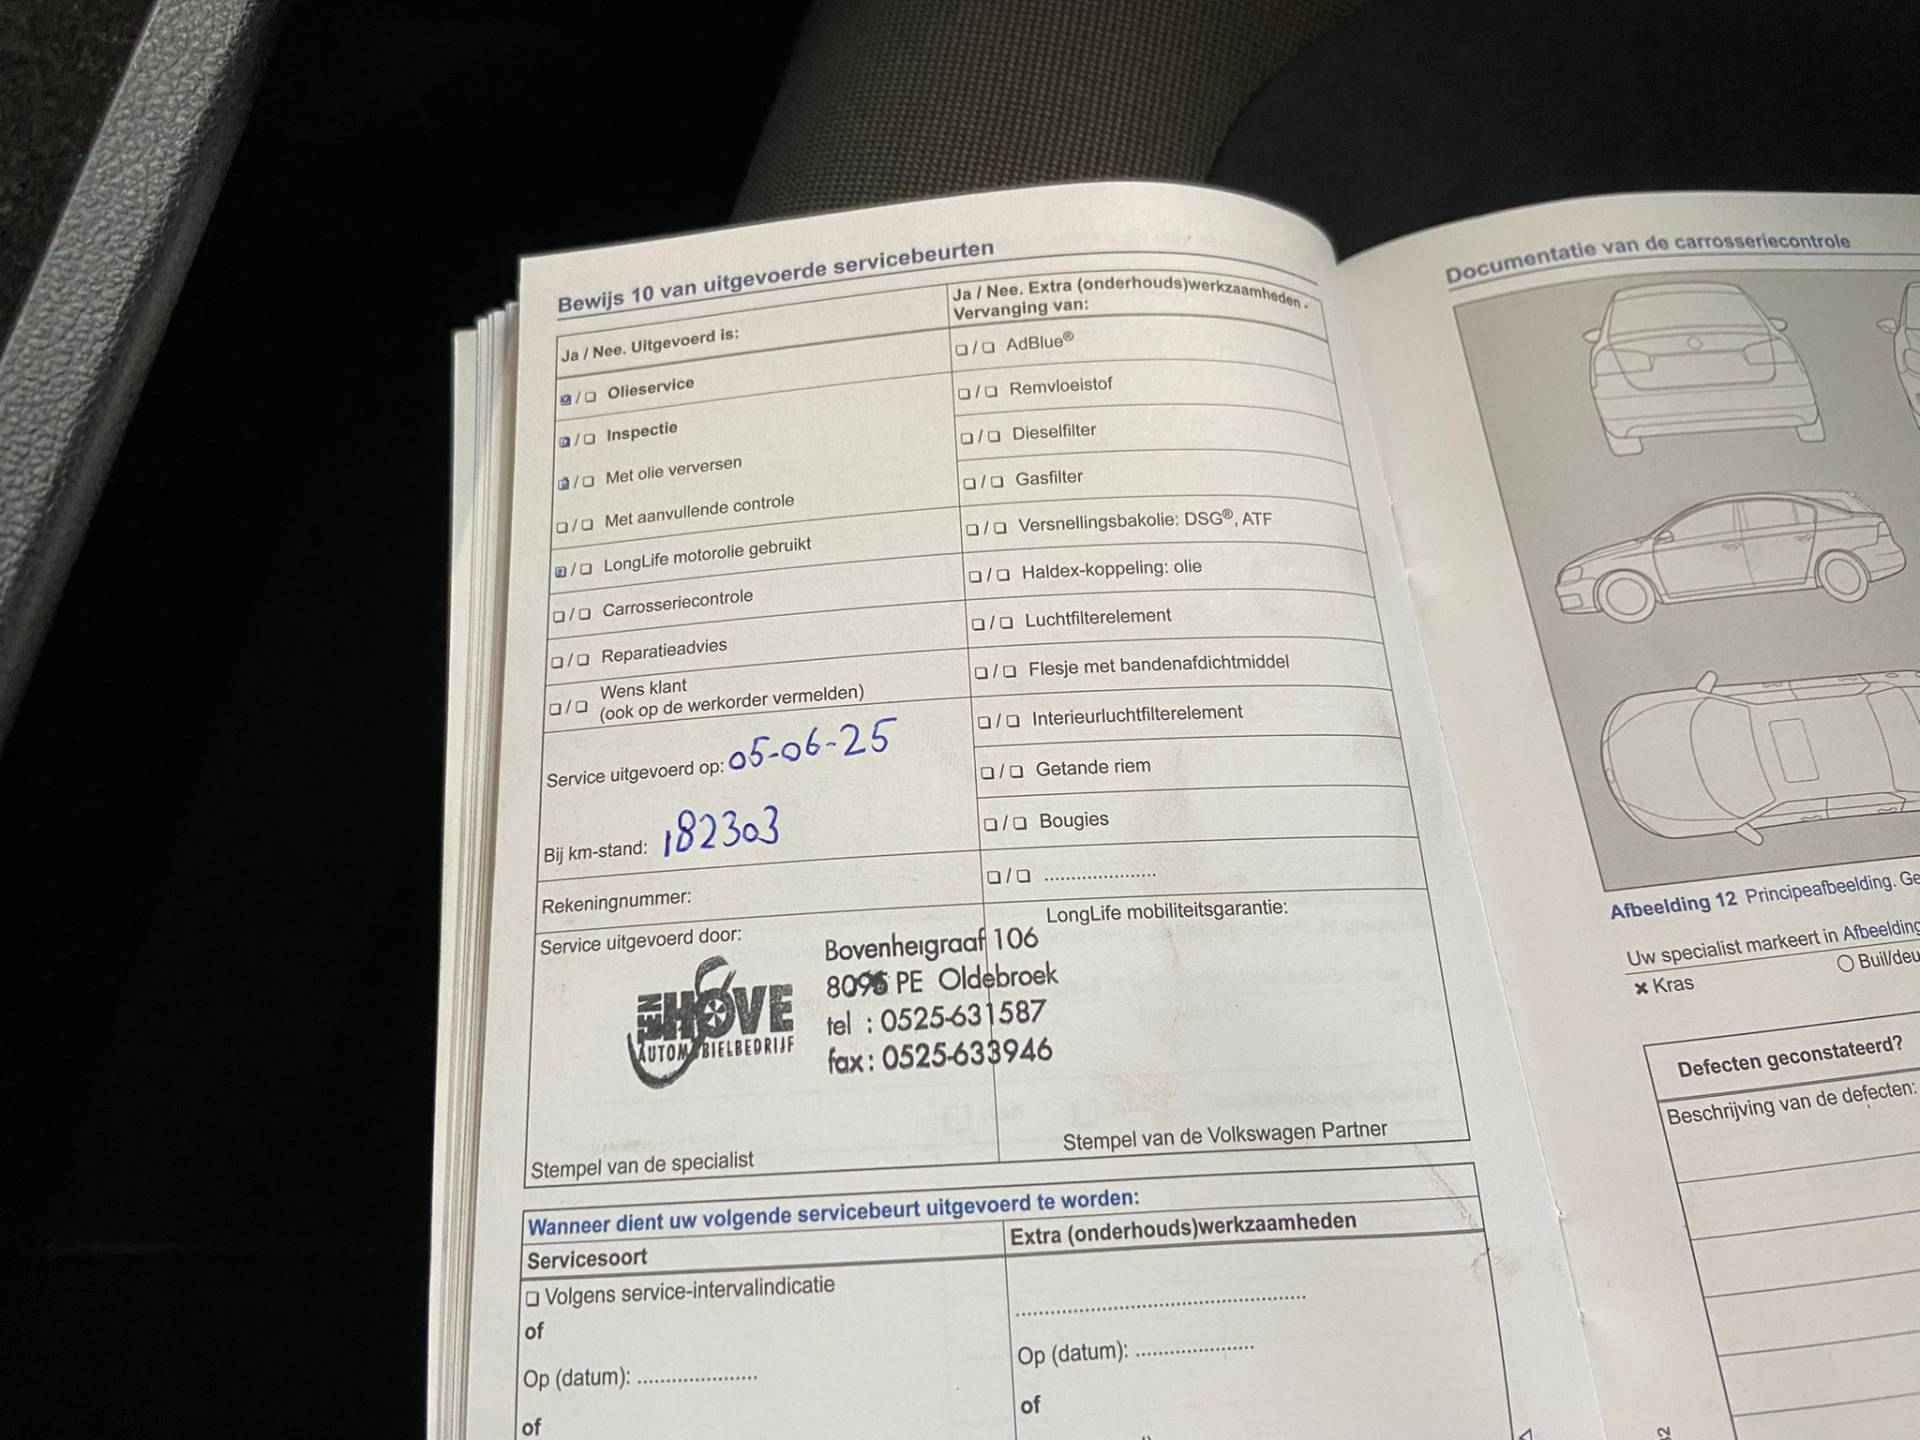 Bewijs 10 van uitgevoerde servicebeurten
Ja / Nee. Uitgevoerd is:
❏ / ❏ Olieservice
❏ / ❏ Inspectie
❏ / ❏ Met olie verversen
❏ / ❏ Met aanvullende controle
❏ / ❏ LongLife motorolie gebruikt
❏ / ❏ Carrosseriecontrole
❏ / ❏ Reparatieadvies
❏ / ❏ Wens klant
(ook op de werkorder vermelden)
Service uitgevoerd op: 05-06-25
Bij km-stand: 182303
Rekeningnummer:
Service uitgevoerd door:
TEN HOVE
AUTOMOBIELBEDRIJF
Bovenheigraaf 106
8096 PE Oldebroek
tel : 0525-631587
fax : 0525-633946
Stempel van de specialist
Ja / Nee. Extra (onderhouds)werkzaamheden -
Vervanging van:
❏ / ❏ AdBlue®
❏ / ❏ Remvloeistof
❏ / ❏ Dieselfilter
❏ / ❏ Gasfilter
❏ / ❏ Versnellingsbakolie: DSG®, ATF
❏ / ❏ Haldex-koppeling: olie
❏ / ❏ Luchtfilterelement
❏ / ❏ Flesje met bandenafdichtmiddel
❏ / ❏ Interieurluchtfilterelement
❏ / ❏ Getande riem
❏ / ❏ Bougies
❏ / ❏ ......................
LongLife mobiliteitsgarantie:
Stempel van de Volkswagen Partner
Wanneer dient uw volgende servicebeurt uitgevoerd te worden:
Servicesoort
❏ Volgens service-intervalindicatie
of
Op (datum): ......................
of
Extra (onderhouds)werkzaamheden
......................................................
Op (datum): ......................
of
Documentatie van de carrosseriecontrole
Afbeelding 12 Principeafbeelding. Ge
Uw specialist markeert in Afbeelding
✖ Kras
○ Buil/deu
Defecten geconstateerd?
Beschrijving van de defecten: